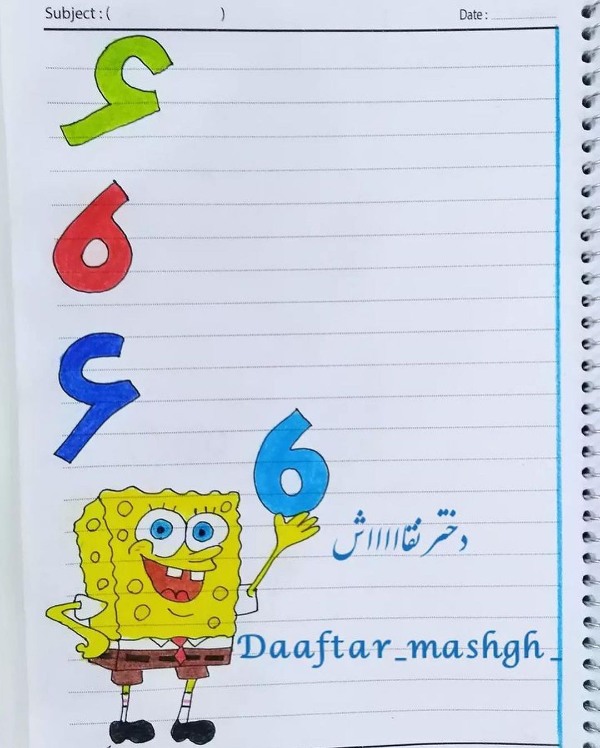 Subject : ( ) Date :
۶
6
۶
6
دختر نقااااااش
Daaftar_mashgh_